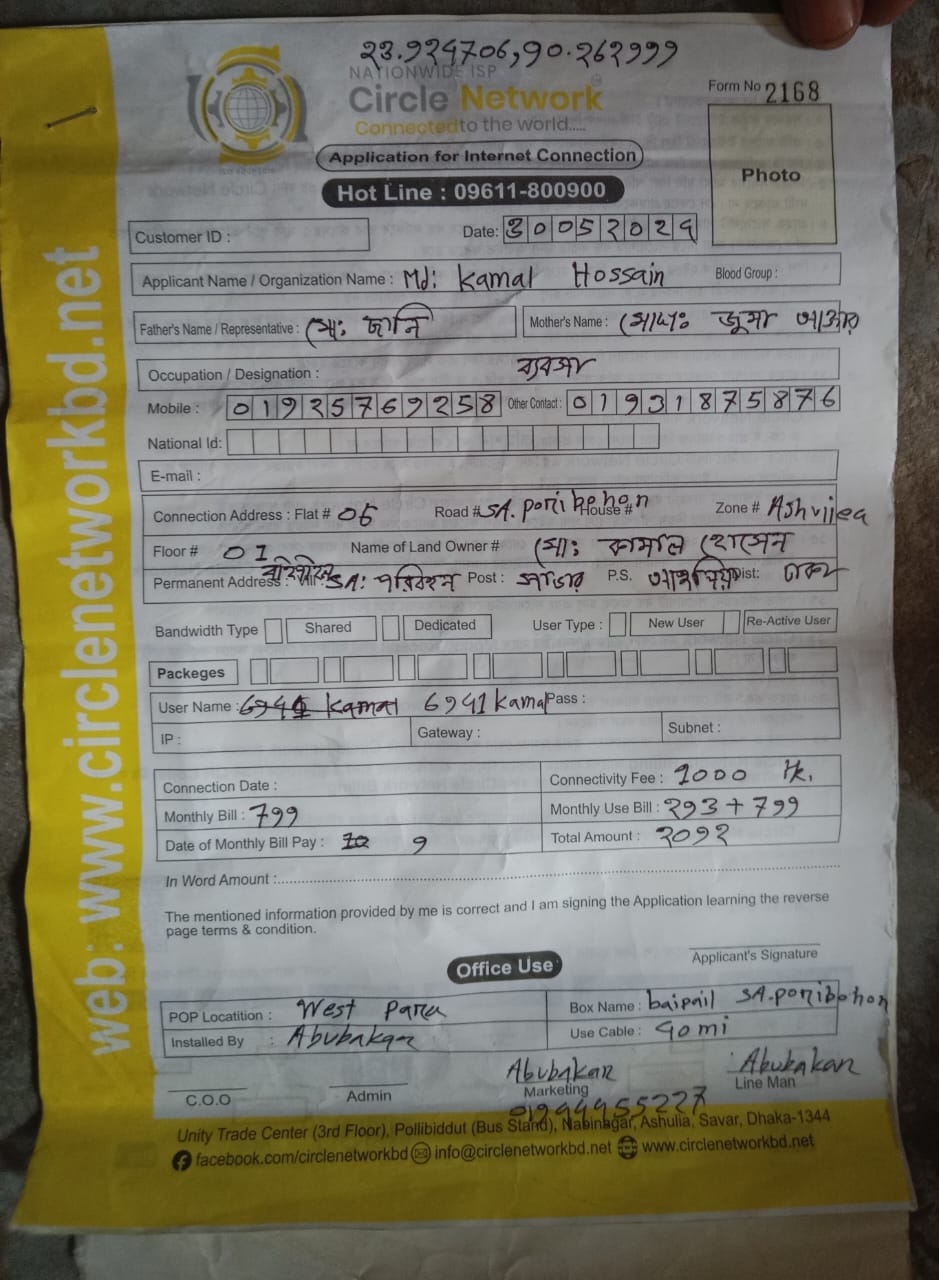 23.924706,90.262999
NATIONWIDE ISP
Circle Network
Connected to the world.....
Form No 2168
Photo
Application for Internet Connection
Hot Line : 09611-800900
Customer ID :
Date: 30052024
Applicant Name / Organization Name : Md: Kamal Hossain Blood Group :
Father's Name / Representative : মো: জানি Mother's Name : মোসা: জুমা আক্তার
Occupation / Designation : ব্যবসা
Mobile : 01925769258 Other Contact : 01931875876
National Id:
E-mail :
Connection Address : Flat # 05 Road # SA. poribohon House # Zone # Ashuliea
Floor # 01 Name of Land Owner # মো: কামাল হোসেন
Permanent Address : বাইপাইল SA: পরিবহন Post : সাভার P.S. আশুলিয়া Dist: ঢাকা
Bandwidth Type Shared Dedicated User Type : New User Re-Active User
Packeges
User Name : Kamal 6941kamal Pass :
IP : Gateway : Subnet :
Connection Date : Connectivity Fee : 1000 Tk.
Monthly Bill : 799 Monthly Use Bill : 293 + 799
Date of Monthly Bill Pay : 10 9 Total Amount : 2092
In Word Amount :
The mentioned information provided by me is correct and I am signing the Application learning the reverse
page terms & condition.
Applicant's Signature
Office Use
POP Locatition : West Para Box Name : baipail SA.poribohon
Installed By : Abubakar Use Cable : 40mi
Abubakar Abubakar
C.O.O Admin Marketing Line Man
Unity Trade Center (3rd Floor), Pollibiddut (Bus Stand), Nabinagar, Ashulia, Savar, Dhaka-1344
facebook.com/circlenetworkbd info@circlenetworkbd.net www.circlenetworkbd.net
web: www.circlenetworkbd.net